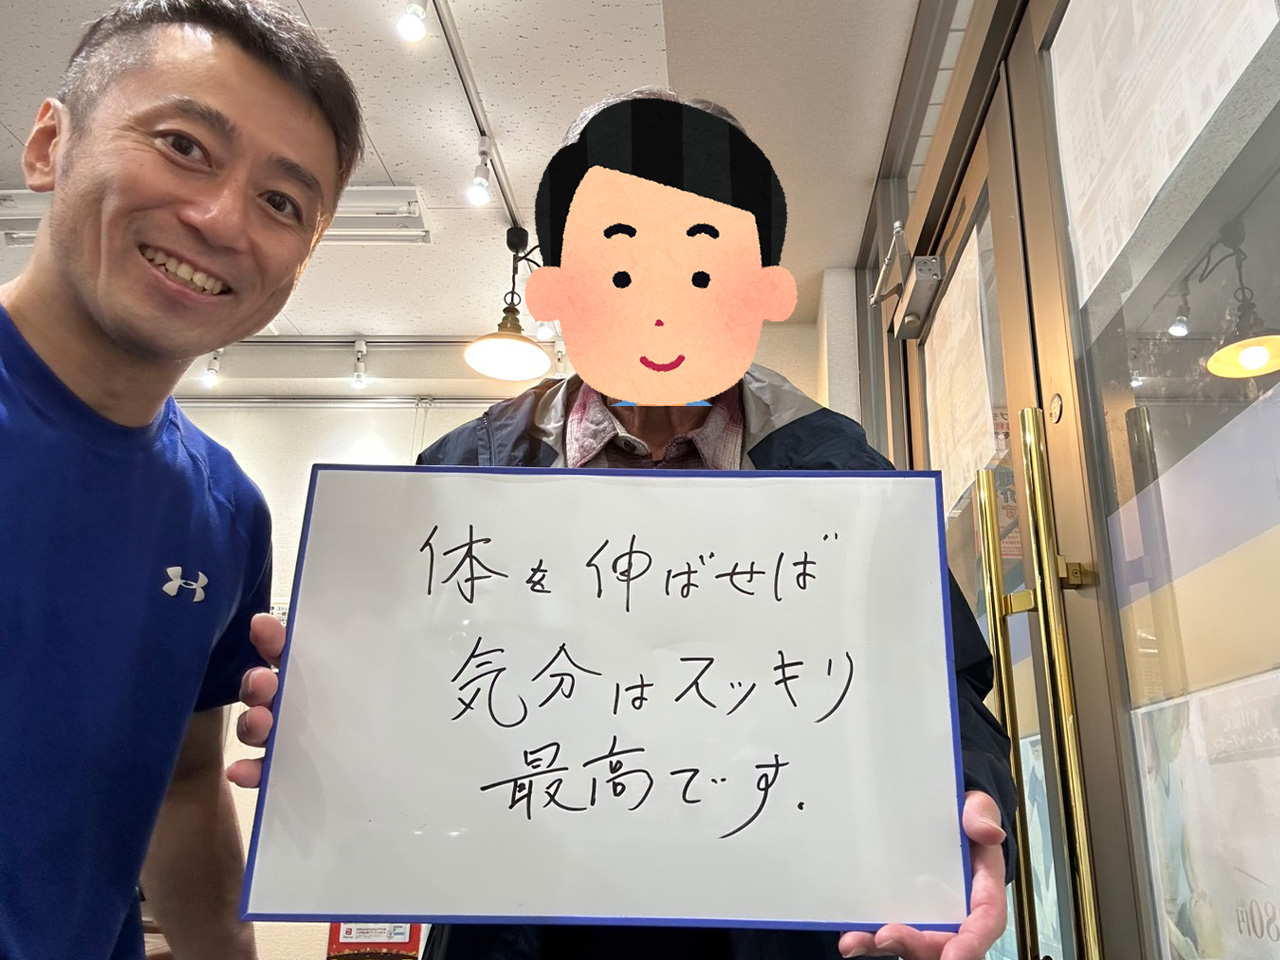 体を伸ばせば
気分はスッキリ
最高です.